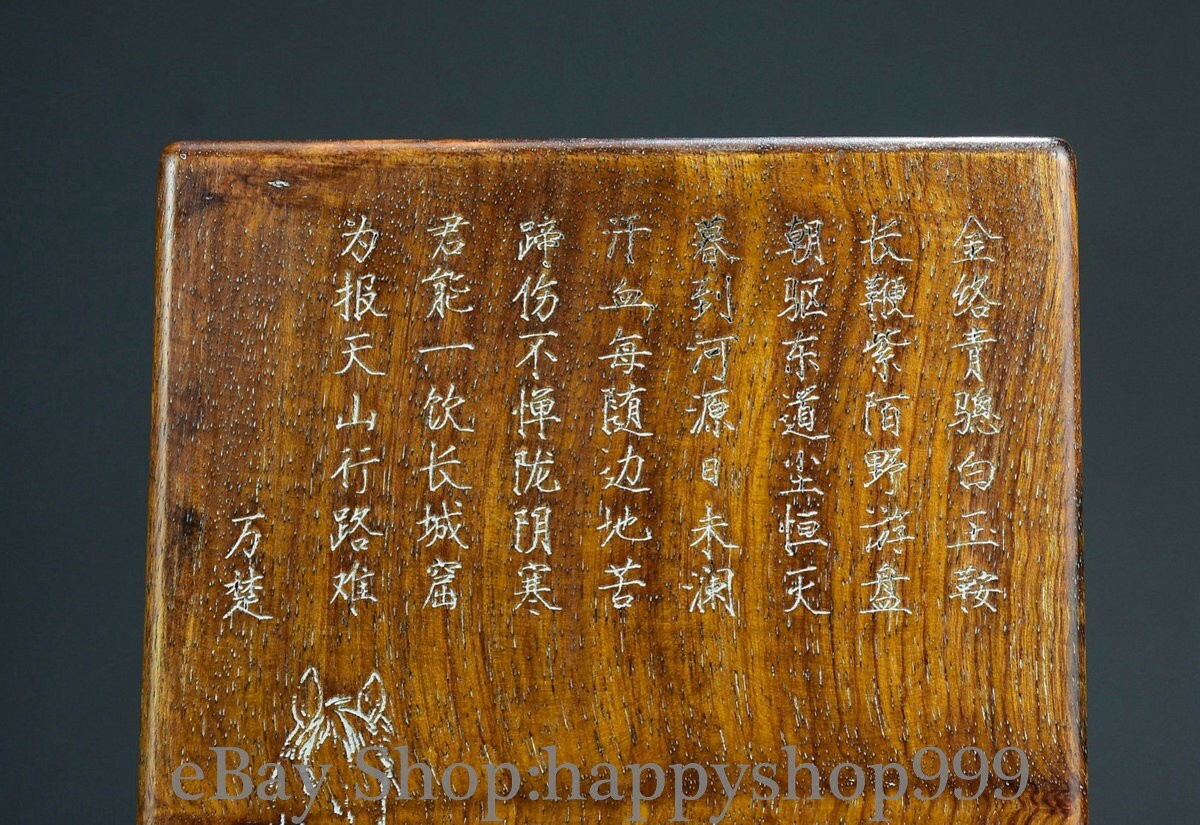 金络青骢白玉鞍
长鞭紫陌野游盘
朝驱东道尘恒灭
暮到河源日未澜
汗血每随边地苦
蹄伤不惮陇阴寒
君能一饮长城窟
为报天山行路难
万楚
eBay Shop:happyshop999